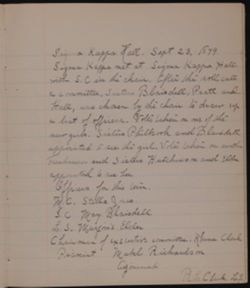 Sigma Kappa Hall. Sept 23, 1899.
Sigma Kappa met at Sigma Kappa Hall
with S.C. in the chair. After the roll call
a committee, Sisters Blaisdell, and
Hall, was chosen by the chair to draw up
a list of officers. Voted in one of the
new girls. Sisters Philbrook and Blaisdell
appointed to see the girl. Voted in another
and Sisters Hutchinson and Elder
appointed to see her
Officers for this term.
W.C. Stella Jones.
S.C. May Blaisdell
L.S. Marjorie Elder
Chairman of executive committee, Clark
Mabel Richardson
Adjourned
Clark L.S.